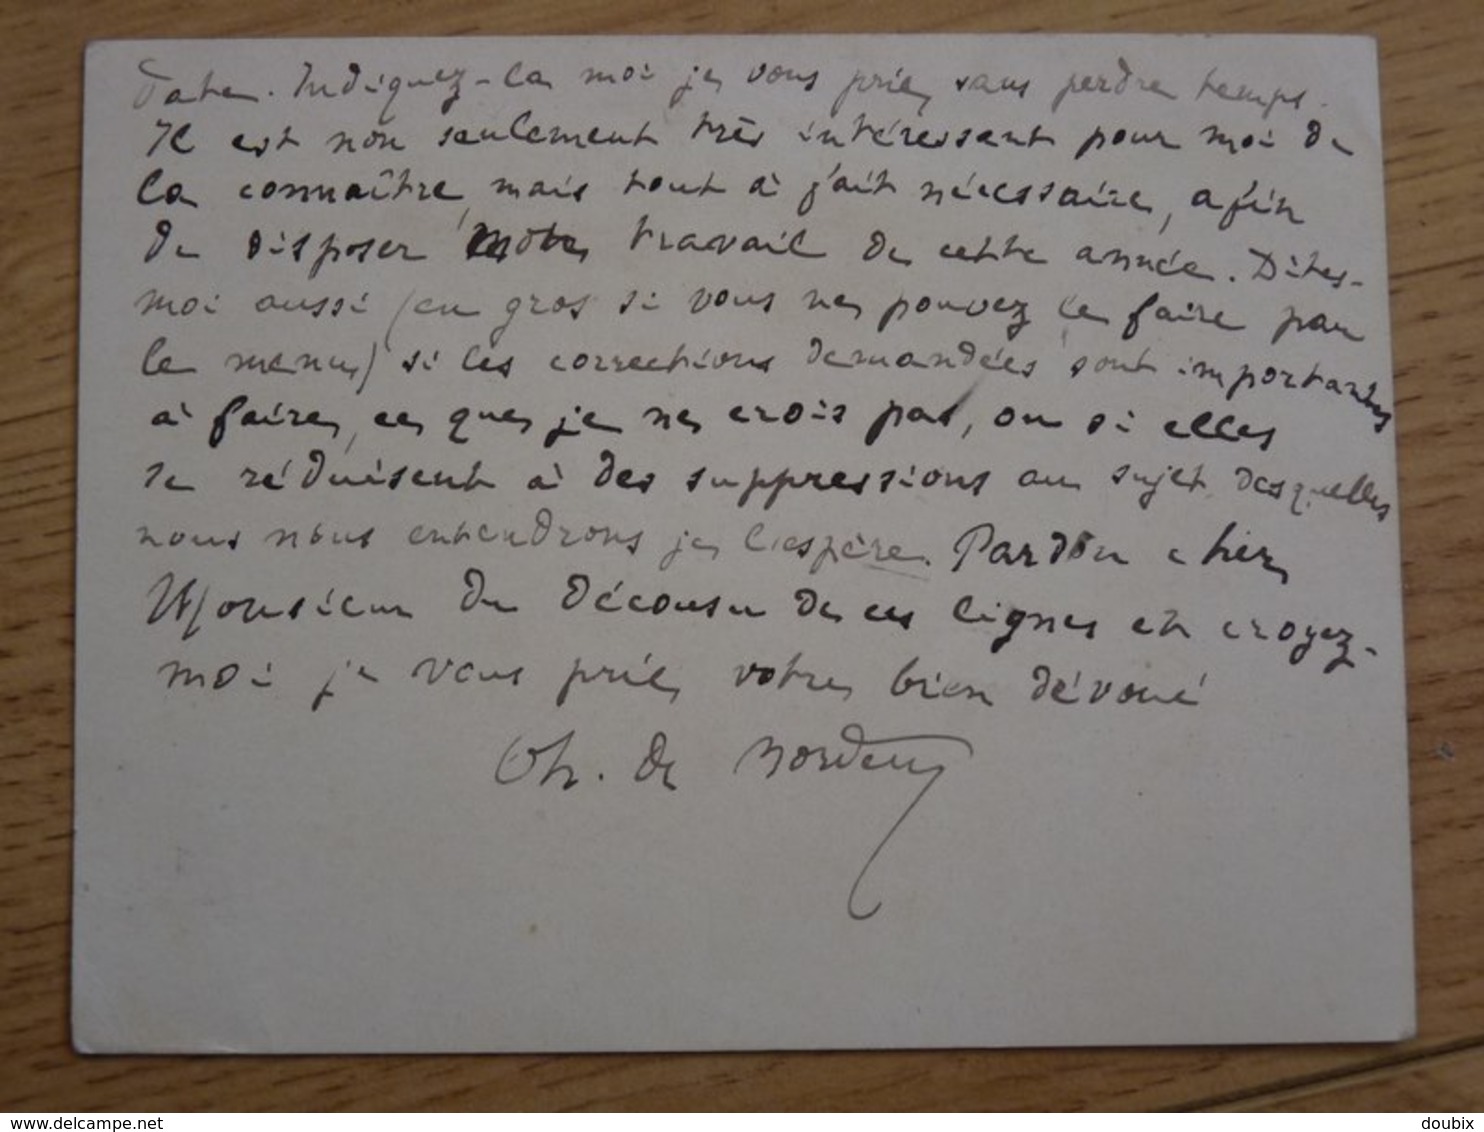 date. Indiquez-la moi je vous prie, sans perdre temps.
Il est non seulement très intéressant pour moi de
la connaître, mais tout à fait nécessaire, afin
de disposer notre travail de cette année. Dites-
moi aussi (en gros si vous ne pouvez le faire par
le menu) si les corrections demandées sont importantes
à faire, ce que je ne crois pas, ou si elles
se réduisent à des suppressions au sujet desquelles
nous nous entendrons je l'espère. Pardon cher
Monsieur du décousu de ces lignes et croyez-
moi je vous prie, votre bien dévoué
Ch. de
delcampe.net
doubix